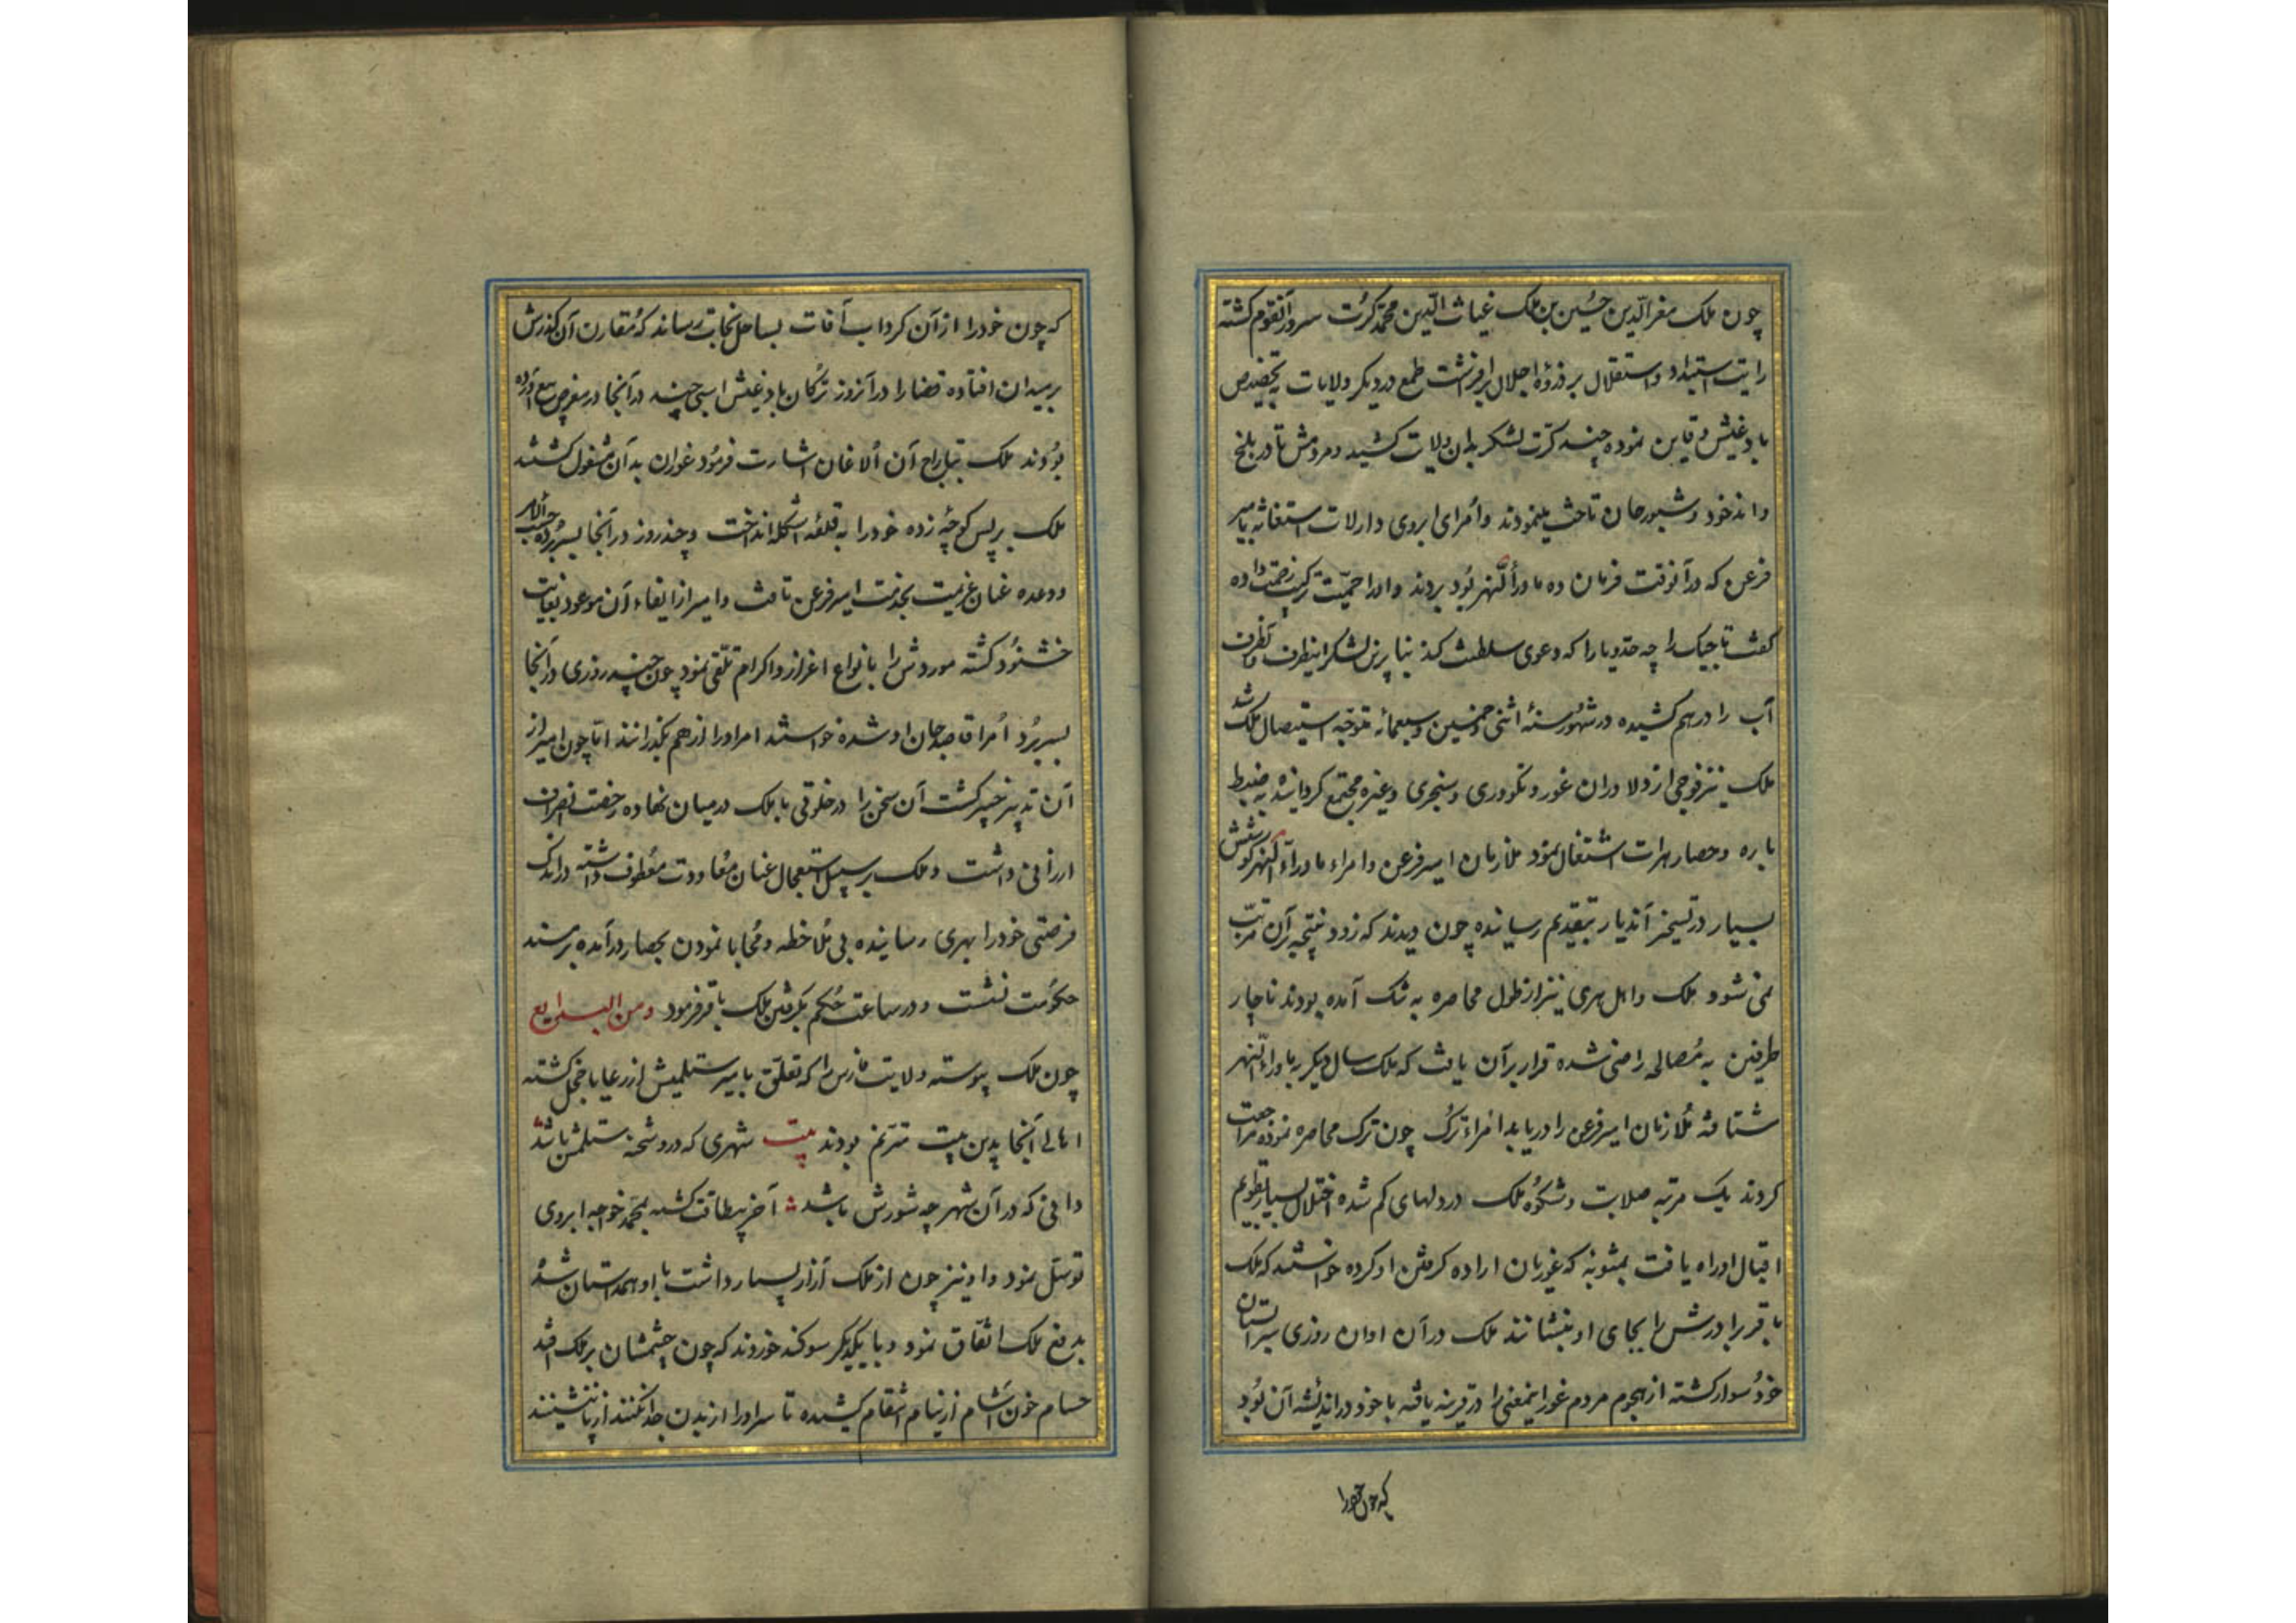 چون ملک معز الدّین حُسین بن ملک غیاث الدّین محمّد کرُت سرور آنقوم کشته
رایت استبداد و استقلال بر ذروهٔ اجلال برافرشت طمع در دیکر ولایات به تخصیص
بادغیش و قاین نموده چند کرّت لشکر بدان ولایت کشید و مردمش تا در بلخ
واندخود و شبورحان تاخت مینمودند و اُمرای ابروی دارلات استغاثه بامیر
فرعن که در آنوقت فرمان ده ماورأ النّهر بُود بردند و اورا حمیّت ترکیّت رخصت داده
کفت تاجیک را چه حدّ و یارا که دعوی سلطنت کند بنابرین لشکر اینطرف و آنطرف
آب را درهم کشیده در شهُور سنهٔ اثنی و خمسین و سبعمائه متوجّه استیصال ملک شد
ملک نیز فوجی از دلاوران غور و نکودری و سنجری و غیره مجتمع کردانیده به ضبط
باره و حصار هرات اشتغال نمُود ملازمان امیر فرعن و امراء ماورآء النهر کوشش
بسیار در تسخیر آندیار بتقدیم رسانیده چون دیدند که زود نتیجه بر آن مرتّب
نمی شود و ملک و اهل هری نیز از طول محاصره به تنک آمده بودند ناچار
طرفین به مُصالحه راضی شده قرار بر آن یافت که ملک سال دیکر به ماوراء النّهر
شتافته مُلازمان امیر فرعن را دریابد امراء ترک چون ترک محاصره نموده مراجعت
کردند یک مرتبه صلابت و شکوُه ملک در دلهای کم شده اختلال بسیار بقوایم
اقبال او راه یافت بمثوبه که غوریان اراده کرفتن او کرده خواستند که ملک
باقر برادرش را بجای او بنشانند ملک در آن اوان روزی بسیر آلستان
خودُ سوار کشته از هجوم مردم غور اینمعنی را در قرینه یافته با خود در اندیشه آن بُود
که چون خود را
که چون خودرا از آن کرداب آفات بساحل نجات رساند که مُقارن آن کذرش
بر میدان افتاده قضارا در آنروز ترکان بادغیش اسبی چند در آنجا در معرض بیع آورده
بوُدند ملک بتاراج آن اُلاغان اشارت فرمُود غوران بدان مشغول کشتند
ملک بر پس کوچهٔ زده خودرا به قلعهٔ اشکله انداخت و چند روز در آنجا بسر برُده حسب الامر
و وعده عنان عزیمت بخدمت امیر فرعن تافت و امیر از ایفاء آن موعود بغایت
خشنوُد کشته موردش را بانواع اعزاز و اکرام تلقّی نمود چون چند روزی در آنجا
بسر برُد اُمرا قاصد جان او شده خواستند امرا اورا از هم بکذرانند امّا چون امیر از
آن تدبیر خبیر کشت آن سخن را در خلوتی با ملک در میان نهاده رخصت انصراف
ارزانی داشت و ملک بر سبیل استعجال عنان مُعاودت معُطوف داشته در اندک
فرصتی خودرا بهری رسانیده بی مُلاحظه و مُحابا نمودن بحصار درآمده بر مسند
حکوُمت نشست و در ساعت حُکم بکرفتن ملک باقر فرمود ومن البدایع
چون ملک پیوسته ولایت فارس را که تعلّق بامیر ستلمیش از رعایا خجل کشته
اهالی آنجا بدین بیت مترنم بودند بیت شهری که در و شحنه ستلمش باشد
دانی که در آن شهر چه شورش باشد آخر بیطاقت کشته بمحمّد خواجه ابروی
توسّل نمود و او نیز چون از ملک آزار بسیار داشت با او همداستان شُد
بدفع ملک اتّفاق نمود و با یکدیکر سوکند خوردند که چون چشمشان بر ملک افتد
حسام خون آشام از نیام انتقام کشیده تا سر اورا از بدن جدا نکنند از پا ننشینند